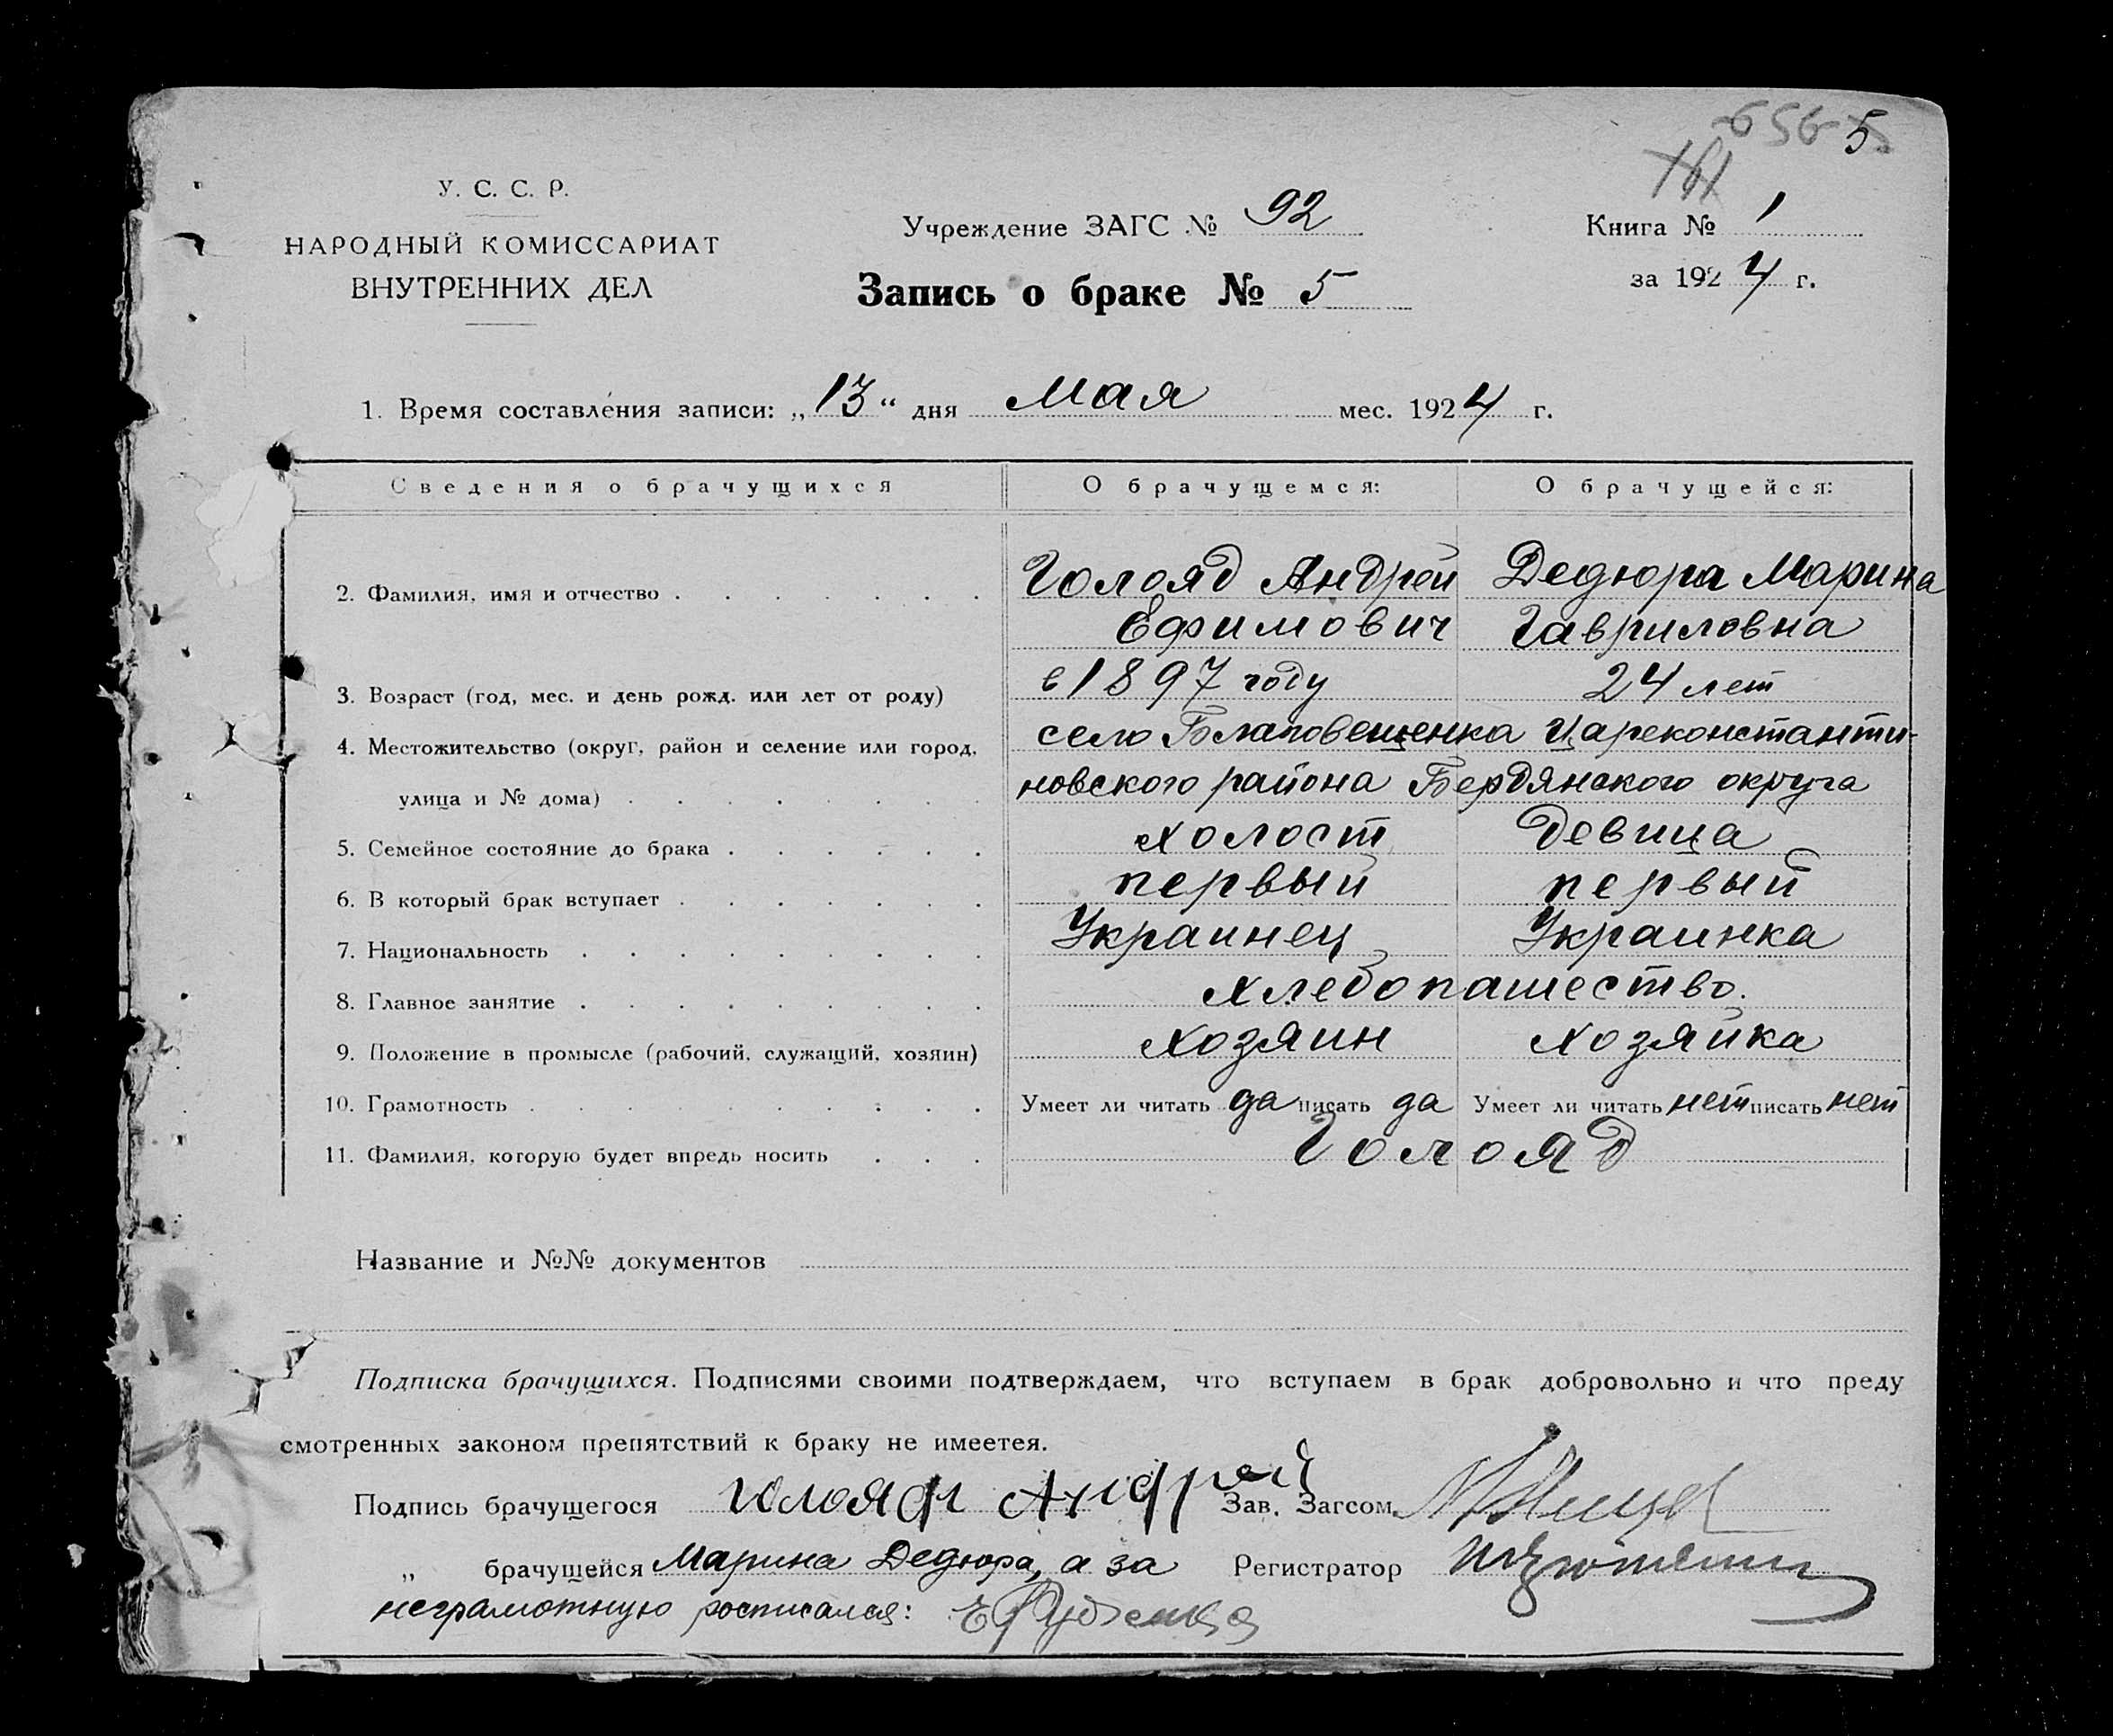 656 5
У. С. С. Р.
НАРОДНЫЙ КОМИССАРИАТ
ВНУТРЕННИХ ДЕЛ
Учреждение ЗАГС № 92
Запись о браке № 5
Книга № 1
за 1924 г.
1. Время составления записи: „13“ дня Мая мес. 1924 г.
Сведения о брачущихся О брачущемся: О брачущейся:
2. Фамилия, имя и отчество . . . . . . . Голояд Андрей Дедюра Марина
Ефимович Гавриловна
3. Возраст (год, мес. и день рожд. или лет от роду) в 1897 году 24 лет
4. Местожительство (округ, район и селение или город, село Благовещенка Цареконстанти-
улица и № дома) . . . . . . . . новского района Бердянского округа
5. Семейное состояние до брака . . . . . . холост Девица
6. В который брак вступает . . . . . . . первый первый
7. Национальность . . . . . . . . . Украинец Украинка
8. Главное занятие . . . . . . . . . Хлебопашество.
9. Положение в промысле (рабочий, служащий, хозяин) Хозяин Хозяйка
10. Грамотность . . . . . . . . . . Умеет ли читать да писать да Умеет ли читать нет писать нет
11. Фамилия, которую будет впредь носить . . . Голояд
Название и №№ документов
Подписка брачущихся. Подписями своими подтверждаем, что вступаем в брак добровольно и что преду
смотренных законом препятствий к браку не имеетея.
Подпись брачущегося Голояд Андрей Зав. Загсом
„ брачущейся Марина Дедюра, а за Регистратор
неграмотную росписался: